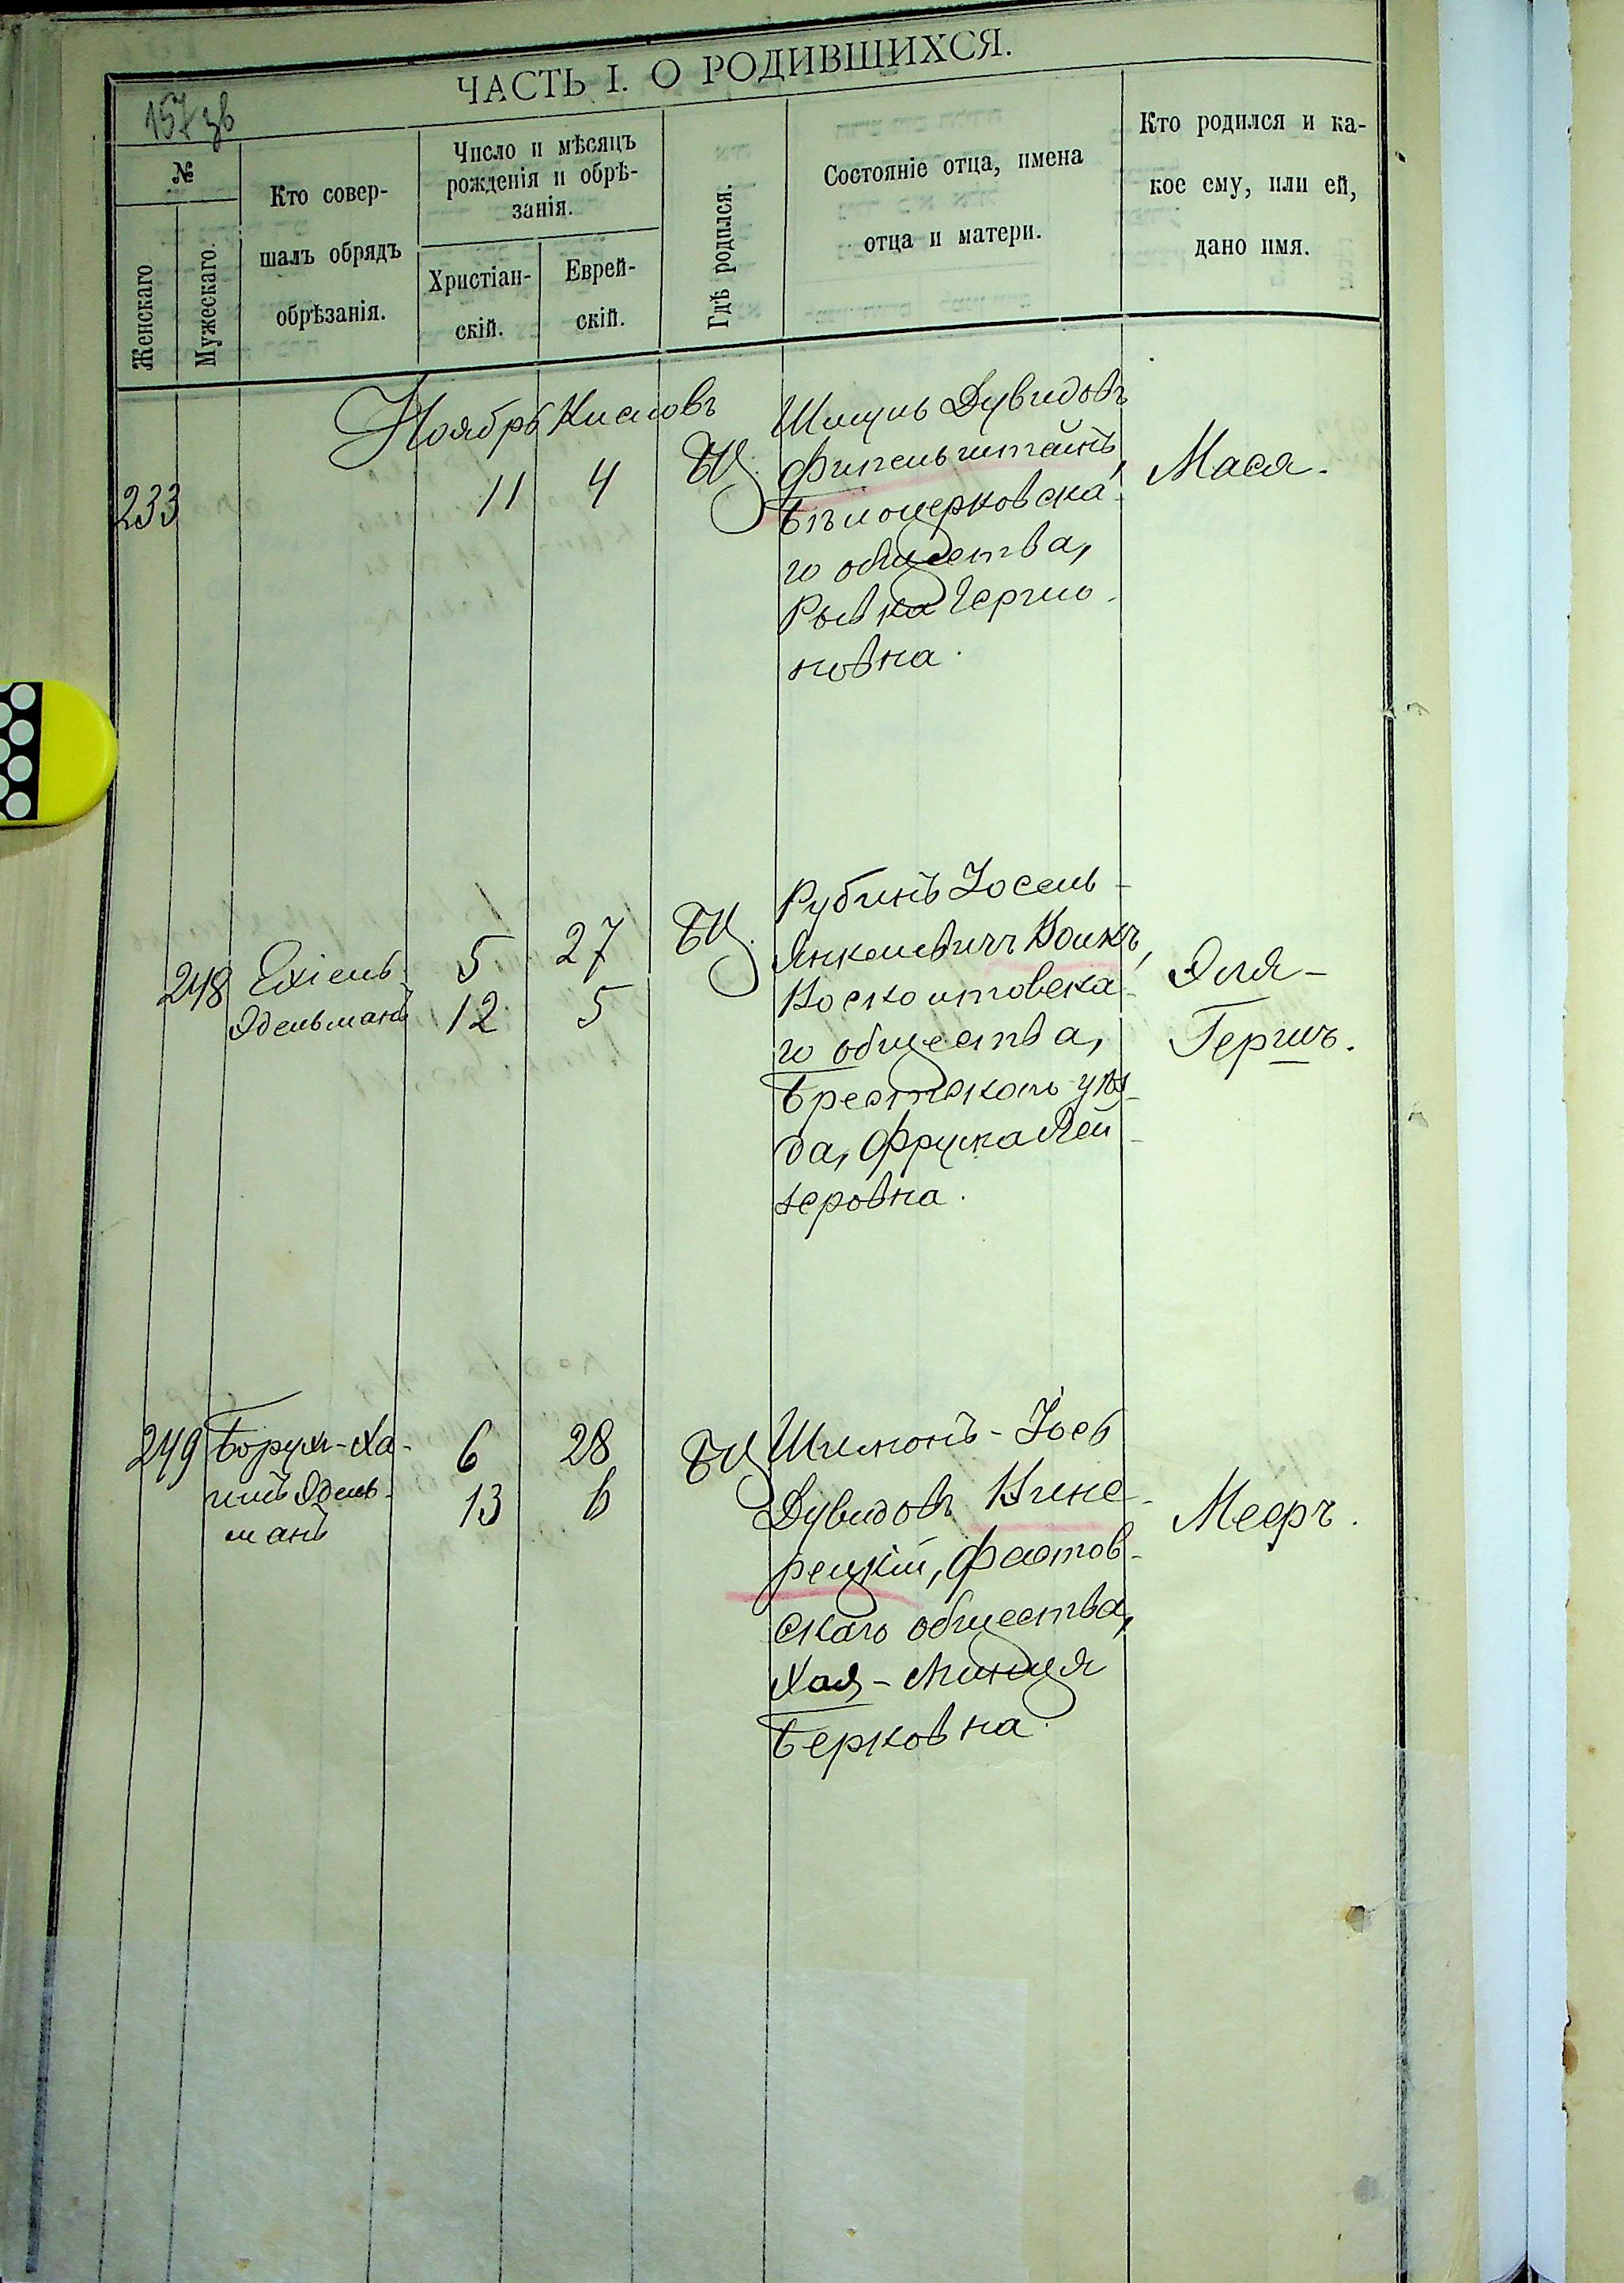 ЧАСТЬ I. О РОДИВШИХСЯ.
№
Женскаго
Мужескаго.
Кто совер-
шалъ обрядъ
обрѣзанія.
Число и мѣсяцъ
рожденія и обрѣ-
занія.
Христіан-
скій.
Еврей-
скій.
Гдѣ родился.
Состояніе отца, имена
отца и матери.
Кто родился и ка-
кое ему, или ей,
дано имя.
Ноябрь Кислевъ
233
11
4
БЦ.
Шмуль Дувидовъ
Финкельштейнъ,
Бѣлоцерковска-
го общества,
Рывка Герш
новна.
Мася.
248
Ехіель
Эдельманъ
5
12
27
5
БЦ.
Рубинъ Іосель-
Янкелевичъ Волкъ,
го общества,
Брестскаго уѣз-
да, Фрума Лей-
зеровна.
Эля-
Гершъ.
249
Борухъ-Ха-
имъ Эдель-
манъ
6
13
28
6
БЦ
Шимонъ-Іось
Дувидовъ
Фастов-
скаго общества,
Хая-Миндя
Берковна.
Мееръ.